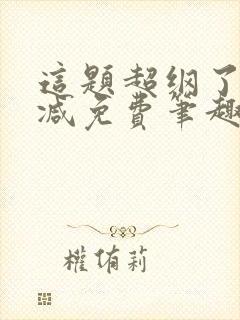 這題超綱了
減免費筆趣
權侑莉